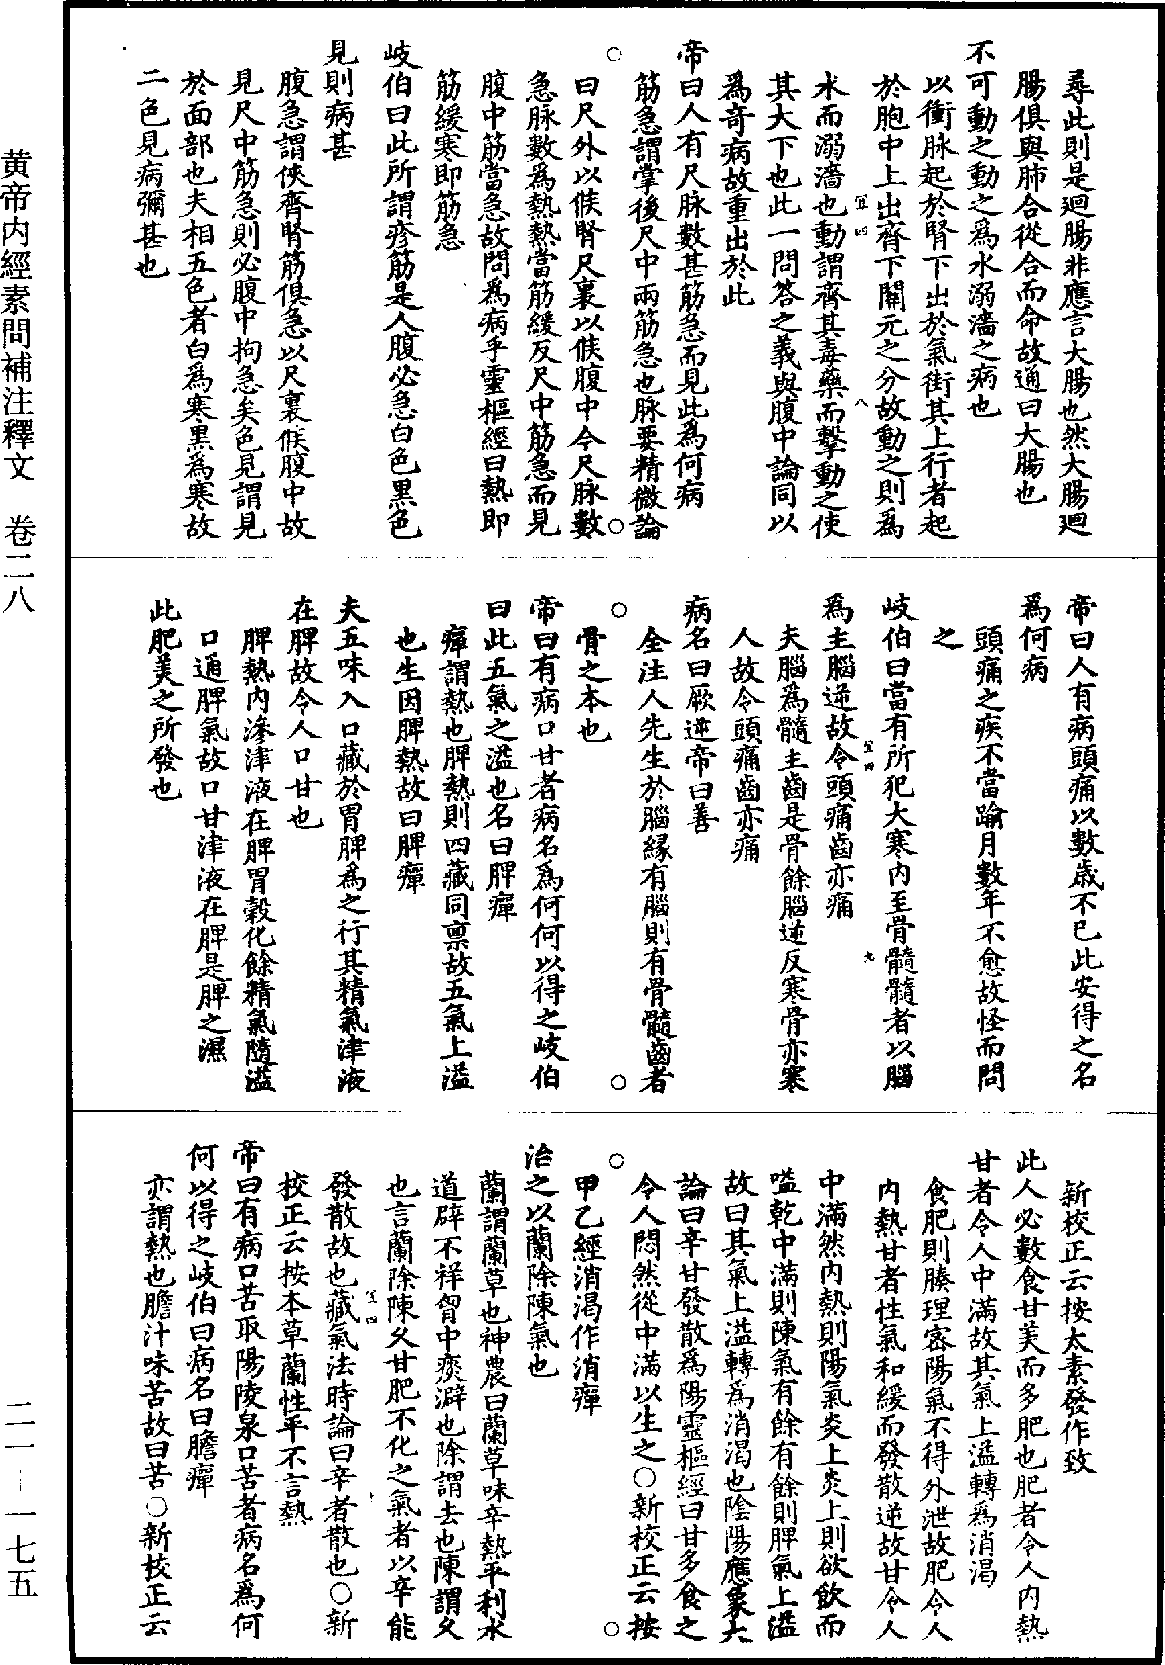 尋此則是迴腸非應言大腸也然大腸迴
腸俱與肺合從合而命故通曰大腸也
不可動之動之爲水溺濇之病也
以衝脉起於腎下出於氣街其上行者起
於胞中上出齊下關元之分故動之則爲
水而溺濇也動謂齊其毒藥而擊動之使
其大下也此一問答之義與腹中論同以
爲奇病故重出於此
帝曰人有尺脉數甚筋急而見此爲何病
筋急謂掌後尺中兩筋急也脉要精微論
曰尺外以候腎尺裏以候腹中今尺脉數
急脉數爲熱熱當筋緩反尺中筋急而見
腹中筋當急故問爲病乎靈樞經曰熱即
筋緩寒即筋急
岐伯曰此所謂疹筋是人腹必急白色黑色
見則病甚
腹急謂俠齊腎筋俱急以尺裏候腹中故
見尺中筋急則必腹中拘急矣色見謂見
於面部也夫相五色者白爲寒黑爲寒故
二色見病彌甚也
帝曰人有病頭痛以數歲不已此安得之名
爲何病
頭痛之疾不當踰月數年不愈故怪而問
之
岐伯曰當有所犯大寒内至骨髓髓者以腦
爲主腦逆故令頭痛齒亦痛
夫腦爲髓主齒是骨餘腦逆反寒骨亦寒
人故令頭痛齒亦痛
病名曰厥逆帝曰善
全注人先生於腦緣有腦則有骨髓齒者
骨之本也
帝曰有病口甘者病名爲何何以得之岐伯
曰此五氣之溢也名曰脾癉
癉謂熱也脾熱則四藏同稟故五氣上溢
也生因脾熱故曰脾癉
夫五味入口藏於胃脾爲之行其精氣津液
在脾故令人口甘也
脾熱内滲津液在脾胃穀化餘精氣隨溢
口通脾氣故口甘津液在脾是脾之濕
此肥美之所發也
新校正云按太素發作致
此人必數食甘美而多肥也肥者令人内熱
甘者令人中滿故其氣上溢轉爲消渴
食肥則腠理密陽氣不得外泄故肥令人
内熱甘者性氣和緩而發散逆故甘令人
中滿然内熱則陽氣炎上炎上則欲飲而
嗌乾中滿則陳氣有餘有餘則脾氣上溢
故曰其氣上溢轉爲消渴也陰陽應象大
論曰辛甘發散爲陽靈樞經曰甘多食之
令人悶然從中滿以生之○新校正云按
甲乙經消渴作消癉
治之以蘭除陳氣也
蘭謂蘭草也神農曰蘭草味辛熱平利水
道辟不祥胷中痰澼也除謂去也陳謂久
也言蘭除陳久甘肥不化之氣者以辛能
發散故也藏氣法時論曰辛者散也○新
校正云按本草蘭性平不言熱
帝曰有病口苦取陽陵泉口苦者病名爲何
何以得之岐伯曰病名曰膽癉
亦謂熱也膽汁味苦故曰苦○新校正云
黄帝内經素問補注釋文　卷二八
二一－一七五